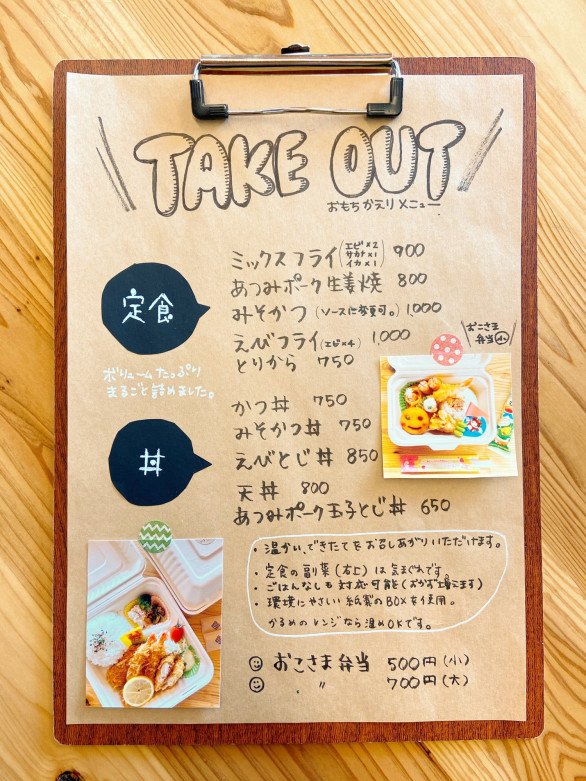 TAKE OUT
おもちかえりメニュー
定食
ボリュームたっぷり
まるごと詰めました。
ミックスフライ(エビ×2 サカナ×1 イカ×1) 900
あつみポーク生姜焼 800
みそかつ(ソースに変更可。) 1,000
えびフライ(エビ×4) 1,000
とりから 750
おこさま
弁当小
丼
かつ丼 750
みそかつ丼 750
えびとじ丼 850
天丼 800
あつみポーク玉子とじ丼 650
・温かい、できたてをお召しあがりいただけます。
・定食の副菜(右上)は気まぐれです。
・ごはんなしも対応可能(おかず増えます)
・環境にやさしい紙製のBOXを使用。
かるめのレンジなら温めOKです。
おこさま弁当 500円(小)
〃 700円(大)